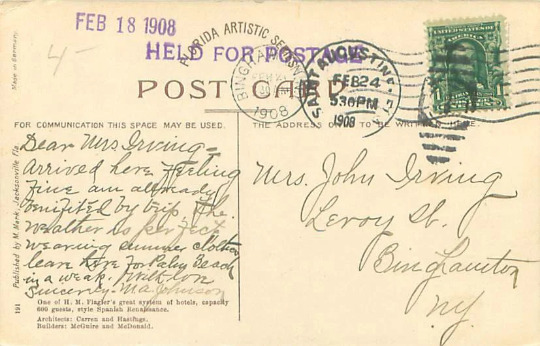 FEB 18 1908
4-
FLORIDA ARTISTIC SERIES
HELD FOR POSTAGE
POST CARD
BINGHAMTON
1908
SAINT AUGUSTINE
FEB 24
530 PM
1908
UNITED STATES OF AMERICA
1 1
Made in Germany.
FOR COMMUNICATION THIS SPACE MAY BE USED.
THE ADDRESS ONLY TO BE WRITTEN HERE.
Dear Mrs Irving =
Arrived here feeling
fine am allready
benifited by trip, The
weather is perfect
wearing summer clothes
leave here for Palm Beach
in a week.
Sincerely M.A. Johnson
Mrs. John Irving
Leroy St.
Binghamton
N.Y.
191 Published by M. Mark, Jacksonville, Fla.
One of H. M. Flagler's great system of hotels, capacity
600 guests, style Spanish Renaissance.
Architects: Carren and Hastings.
Builders: McGuire and McDonald.